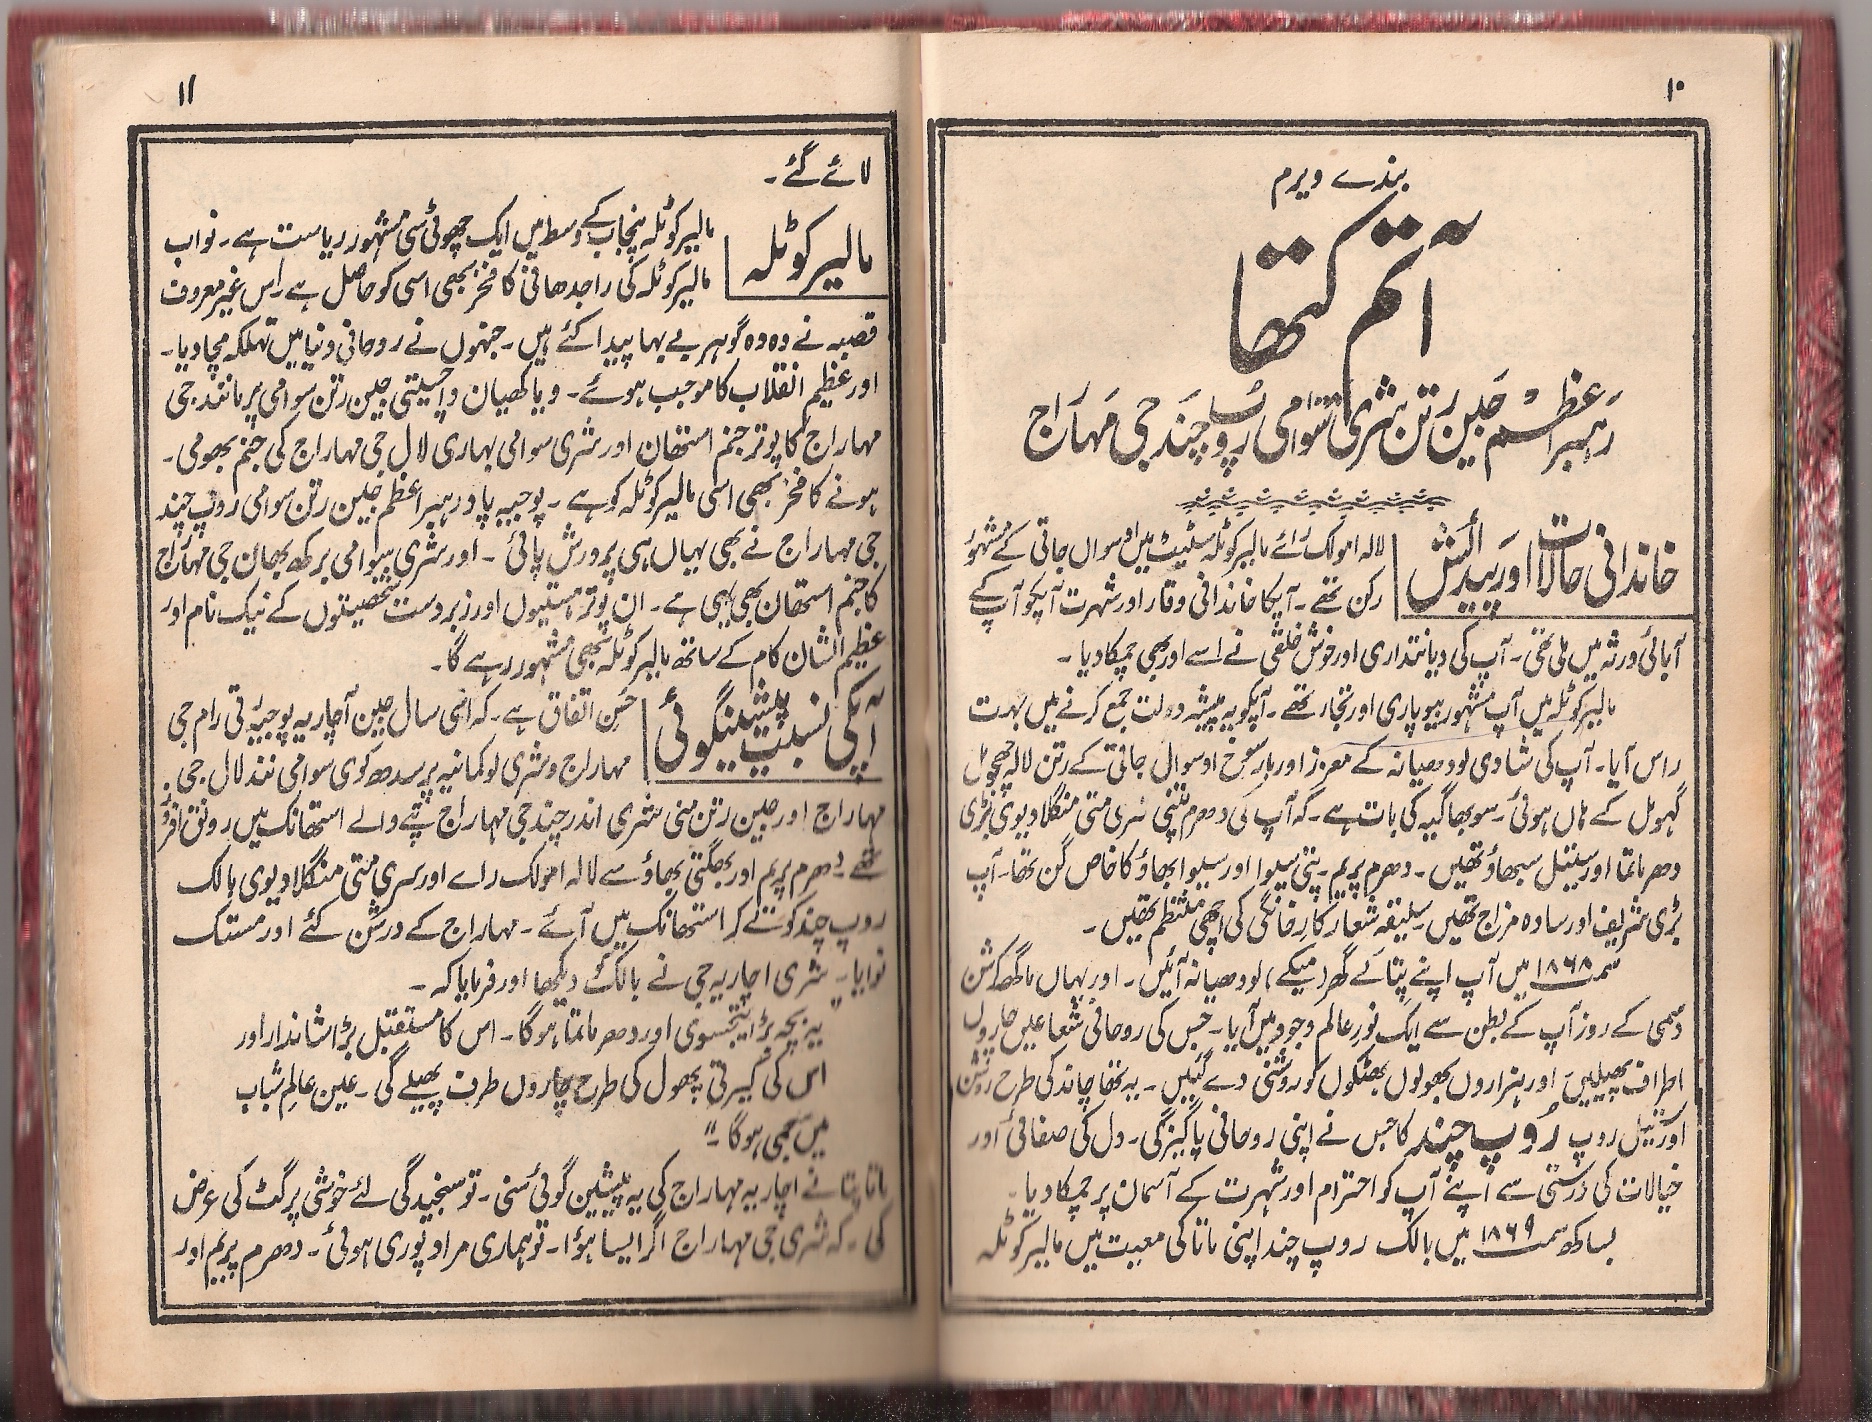 ۱۰
بندے ویرم
آتم کتھا
رہبر اعظم جین رتن شری سوامی روپ چند جی مہاراج
خاندانی حالات اور پیدائش
لالہ امولک رائے مالیر کوٹلہ سٹیٹ میں اوسوال جاتی کے مشہور
رکن تھے۔ آپکا خاندانی وقار اور شہرت آپکو آپ کے
آبائی ورثہ میں ملی تھی۔ آپ کی دیانتداری اور خوش خلقی نے اسے اور بھی چمکا دیا۔
مالیر کوٹلہ میں آپ مشہور بیوپاری اور تجار تھے۔ آپکو یہ پیشہ دولت جمع کرنے میں بہت
راس آیا۔ آپ کی شادی لودھیانہ کے معزز اور بارسوخ اوسوال جاتی کے رتن لالہ
کے ہاں ہوئی۔ سوبھاگیہ کی بات ہے۔ کہ آپ کی دھرم پتنی شری متی منگلا دیوی بڑی
دھرماتما اور سیتل سبھاؤ تھیں۔ دھرم پریم۔ پتی سیوا اور سیوا بھاؤ کا خاص گن تھا۔ آپ
بڑی شریف اور سادہ مزاج تھیں۔ سلیقہ شعار کار خانگی کی اچھی منتظم تھیں۔
سمت ۱۸۶۸ میں آپ اپنے پتا کے گھر (میکے) لودھیانہ آئیں۔ اور یہاں ماگھ کرشن
دسمی کے روز آپ کے بطن سے ایک نور عالم وجود میں آیا۔ جس کی روحانی شعاعیں چاروں
اطراف پھیلیں اور ہزاروں بھولوں بھٹکوں کو روشنی دے گئیں۔ یہ تھا چاند کی طرح روشن
اور نیل روپ رُوپ چند کا جس نے اپنی روحانی پاکیزگی۔ دل کی صفائی اور
خیالات کی درستی سے اپنے آپ کو احترام اور شہرت کے آسمان پر چمکا دیا۔
بساکھ سمت ۱۸۶۹ میں بالک روپ چند اپنی ماتا کی معیت میں مالیر کوٹلہ
۱۱
لائے گئے۔
مالیر کوٹلہ
مالیر کوٹلہ پنجاب کے وسط میں ایک چھوٹی سی مشہور ریاست ہے۔ نواب
مالیر کوٹلہ کی راجدھانی کا فخر بھی اسی کو حاصل ہے۔ اس غیر معروف
قصبہ نے وہ وہ گوہر بے بہا پیدا کئے ہیں۔ جنہوں نے روحانی دنیا میں تہلکہ مچا دیا۔
اور عظیم انقلاب کا موجب ہوئے۔ ویاکھیان جین رتن سوامی پرمانند جی
مہاراج کا پوتر جنم استھان اور شری سوامی بہاری لال جی مہاراج کی جنم بھومی۔
ہونے کا فخر بھی اسی مالیر کوٹلہ کو ہے۔ پوجیہ پاد رہبر اعظم جین رتن سوامی روپ چند
جی مہاراج نے بھی یہاں ہی پرورش پائی۔ اور شری سوامی برکھ بھان جی مہاراج
کا جنم استھان بھی یہی ہے۔ ان پوتر ہستیوں اور زبردست شخصیتوں کے نیک نام اور
عظیم الشان کام کے ساتھ مالیر کوٹلہ بھی مشہور رہے گا۔
آپکی نسبت پیشینگوئی
حسن اتفاق ہے۔ کہ اسی سال جین آچاریہ پوجیہ رام جی
مہاراج و شری لوکمانیہ پرسدھ کوی سوامی نند لال جی
مہاراج اور جین رتن منی شری اندر چند جی مہاراج والے استھانک میں رونق افروز
تھے۔ دھرم پریم اور بھگتی بھاؤ سے لالہ امولک رائے اور سری متی منگلا دیوی بالک
روپ چند کو لے کر استھانک میں آئے۔ مہاراج کے درشن کئے اور مستک
نوایا۔ شری اچاریہ جی نے بالک کو دیکھا اور فرمایا کہ۔
یہ بچہ بڑا تیجسوی اور دھرماتما ہوگا۔ اس کا مستقبل بڑا شاندار اور
اس کی کیرتی پھول کی طرح چاروں طرف پھیلے گی۔ عین عالم شباب
میں ہوگا۔"
ماتا پتا نے اچاریہ مہاراج کی یہ پیشین گوئی سنی۔ تو سنجیدگی لئے خوشی پرگٹ کی عرض
کی۔ کہ شری جی مہاراج اگر ایسا ہوا۔ تو ہماری مراد پوری ہوئی۔ دھرم پریم اور